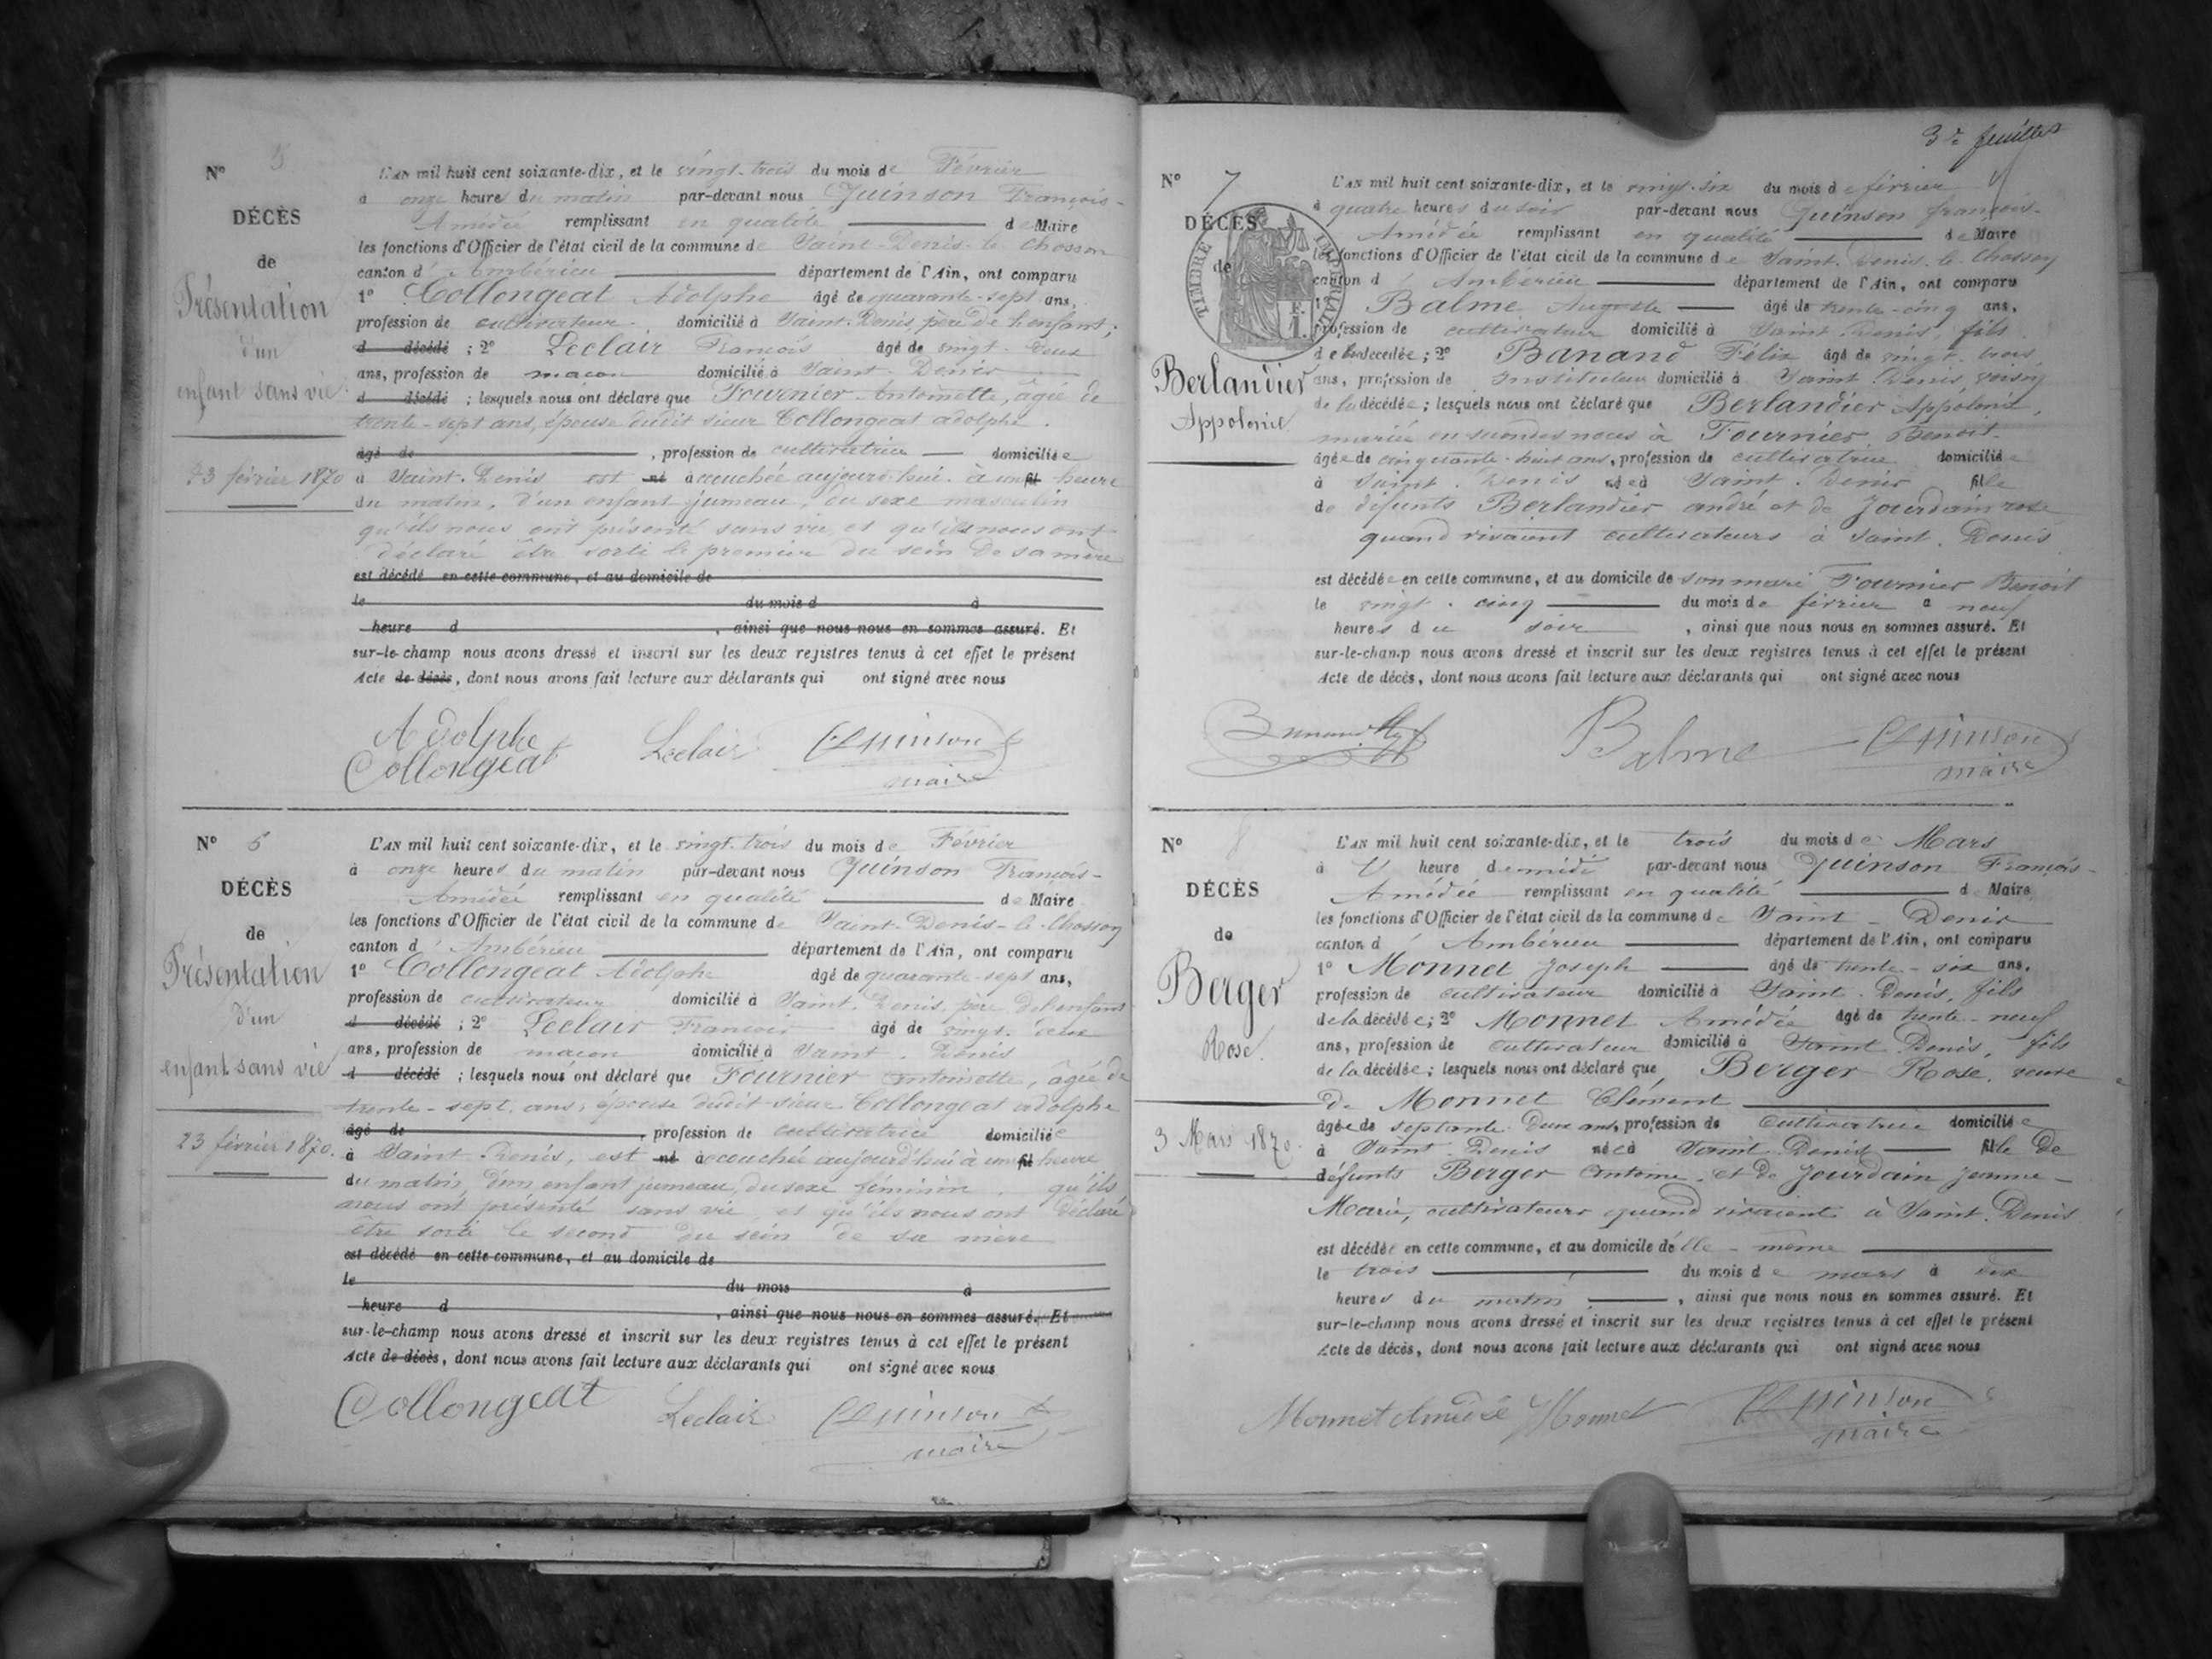 Nº 5
DÉCÈS
de
Présentation
d'un
enfant sans vie
23 février 1870
L'AN mil huit cent soixante-dix, et le vingt-trois du mois de Février
à onze heures du matin par-devant nous Quinson François-
Amédée remplissant en qualité de Maire
les fonctions d'Officier de l'état civil de la commune de Saint-Denis-le-Chosson
canton d'Ambérieu département de l'Ain, ont comparu
1º Collongeat Adolphe âgé de quarante-sept ans,
profession de cultivateur, domicilié à Saint-Denis, père de l'enfant;
d décédé ; 2º Leclair François âgé de vingt-deux
ans, profession de maçon domicilié à Saint-Denis
d décédé ; lesquels nous ont déclaré que Fournier Antoinette, âgée de
trente-sept ans, épouse dudit sieur Collongeat adolphe.
âgé de , profession de cultivatrice domiciliée
à Saint-Denis est né accouchée aujourd'hui à une fil heure
du matin, d'un enfant jumeau, du sexe masculin
qu'ils nous ont présenté sans vie, et qu'ils nous ont
déclaré être sorti le premier du sein de sa mère
est décédé en cette commune, et au domicile de
le du mois d à
heure d , ainsi que nous nous en sommes assuré. Et
sur-le-champ nous avons dressé et inscrit sur les deux registres tenus à cet effet le présent
Acte de décès, dont nous avons fait lecture aux déclarants qui ont signé avec nous
Adolphe
Collongeat Leclair Quinson
maire
Nº 6
DÉCÈS
de
Présentation
d'un
enfant sans vie
23 février 1870.
L'AN mil huit cent soixante-dix, et le vingt-trois du mois de Février
à onze heures du matin par-devant nous Quinson François-
Amédée remplissant en qualité de Maire
les fonctions d'Officier de l'état civil de la commune de Saint-Denis-le-Chosson
canton d'Ambérieu département de l'Ain, ont comparu
1º Collongeat Adolphe âgé de quarante-sept ans,
profession de cultivateur domicilié à Saint-Denis, père de l'enfant
d décédé ; 2º Leclair François âgé de vingt-deux
ans, profession de maçon domicilié à Saint-Denis
d décédé ; lesquels nous ont déclaré que Fournier Antoinette, âgée de
trente-sept ans, épouse dudit sieur Collongeat adolphe
âgé de , profession de cultivatrice domiciliée
à Saint-Denis, est né accouchée aujourd'hui à une fil heure
du matin, d'un enfant jumeau, du sexe féminin, qu'ils
nous ont présenté sans vie, et qu'ils nous ont déclaré
être sorti le second du sein de sa mère
est décédé en cette commune, et au domicile de
le du mois à
heure d , ainsi que nous nous en sommes assuré. Et
sur-le-champ nous avons dressé et inscrit sur les deux registres tenus à cet effet le présent
Acte de décès, dont nous avons fait lecture aux déclarants qui ont signé avec nous
Collongeat Leclair Quinson
maire
3e feuillet
Nº 7
DÉCÈS
de
TIMBRE IMPÉRIAL
Berlandier
Appolonie
L'AN mil huit cent soixante-dix, et le vingt-six du mois de février
à quatre heures du soir par-devant nous Quinson françois-
Amédée remplissant en qualité de Maire
les fonctions d'Officier de l'état civil de la commune de Saint-Denis-le-Chosson
canton d'Ambérieu département de l'Ain, ont comparu
1º Balme Auguste âgé de trente-cinq ans,
profession de cultivateur domicilié à Saint-Denis, fils
de la décédée ; 2º Banand Félix âgé de vingt-trois
ans, profession de Instituteur domicilié à Saint-Denis, voisin
de la décédée ; lesquels nous ont déclaré que Berlandier Appolonie,
mariée en secondes noces à Fournier Benoit.
âgée de cinquante-huit ans, profession de cultivatrice domiciliée
à Saint-Denis née à Saint-Denis fille
de défunts Berlandier andré et de Jourdain rose
quand vivaient cultivateurs à Saint-Denis
est décédée en cette commune, et au domicile de son mari Fournier Benoit
le vingt-cinq du mois de février à neuf
heures du soir , ainsi que nous nous en sommes assuré. Et
sur-le-champ nous avons dressé et inscrit sur les deux registres tenus à cet effet le présent
Acte de décès, dont nous avons fait lecture aux déclarants qui ont signé avec nous
Balme Quinson
maire
Nº 8
DÉCÈS
de
Berger
Rose.
3 Mars 1870.
L'AN mil huit cent soixante-dix, et le trois du mois de Mars
à heure de midi par-devant nous Quinson François-
Amédée remplissant en qualité de Maire
les fonctions d'Officier de l'état civil de la commune de Saint-Denis
canton d'Ambérieu département de l'Ain, ont comparu
1º Monnet Joseph âgé de trente-six ans,
profession de cultivateur domicilié à Saint-Denis, fils
de la décédée ; 2º Monnet Amédée âgé de trente-neuf
ans, profession de cultivateur domicilié à Saint-Denis, fils
de la décédée ; lesquels nous ont déclaré que Berger Rose, veuve
De Monnet Clément
âgée de septante-deux ans, profession de cultivatrice domiciliée
à Saint-Denis née à Saint-Denis fille De
défunts Berger Antoine, et de Jourdain Jeanne-
Marie, cultivateurs quand vivaient à Saint-Denis
est décédée en cette commune, et au domicile d'elle-même
le trois du mois de mars à
heures du matin , ainsi que nous nous en sommes assuré. Et
sur-le-champ nous avons dressé et inscrit sur les deux registres tenus à cet effet le présent
Acte de décès, dont nous avons fait lecture aux déclarants qui ont signé avec nous
Monnet Amédée Monnet Quinson
maire